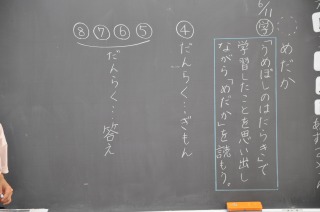 6/11
めだか
学
「うめぼしのはたらき」で
学習したことを思い出し
ながら「めだか」を読もう。
④
だんらく…ぎもん
⑤⑥⑦⑧
だんらく…答え